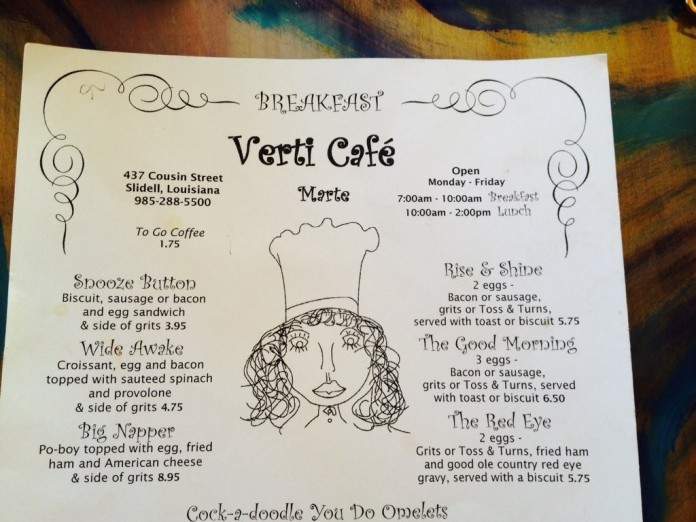 BREAKFAST
Verti Café
Marte
437 Cousin Street
Slidell, Louisiana
985-288-5500
To Go Coffee
1.75
Open
Monday - Friday
7:00am - 10:00am Breakfast
10:00am - 2:00pm Lunch
Snooze Button
Biscuit, sausage or bacon
and egg sandwich
& side of grits 3.95
Wide Awake
Croissant, egg and bacon
topped with sauteed spinach
and provolone
& side of grits 4.75
Big Napper
Po-boy topped with egg, fried
ham and American cheese
& side of grits 8.95
Rise & Shine
2 eggs -
Bacon or sausage,
grits or Toss & Turns,
served with toast or biscuit 5.75
The Good Morning
3 eggs -
Bacon or sausage,
grits or Toss & Turns, served
with toast or biscuit 6.50
The Red Eye
2 eggs -
Grits or Toss & Turns, fried ham
and good ole country red eye
gravy, served with a biscuit 5.75
Cock-a-doodle You Do Omelets